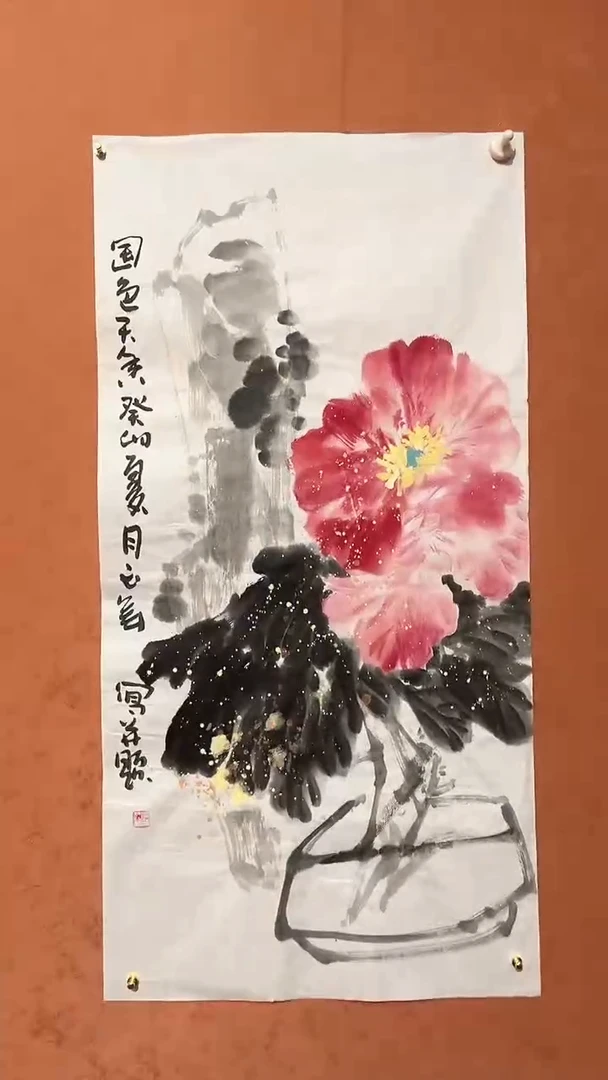 国色天香癸卯夏月
写并题